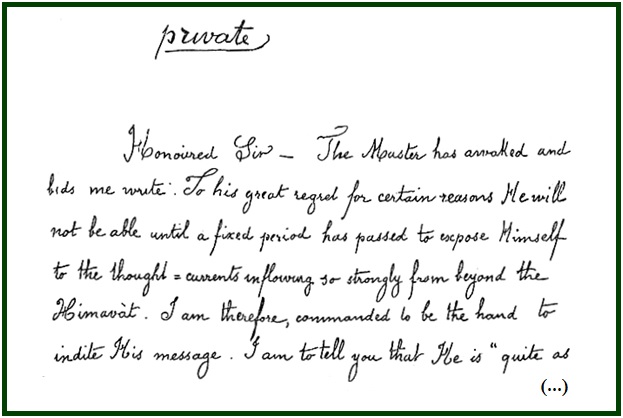 private
Honoured Sir — The Master has awaked and
bids me write. To his great regret for certain reasons He will
not be able until a fixed period has passed to expose Himself
to the thought = currents inflowing so strongly from beyond the
Himavàt. I am therefore, commanded to be the hand to
indite His message. I am to tell you that He is "quite as
(...)